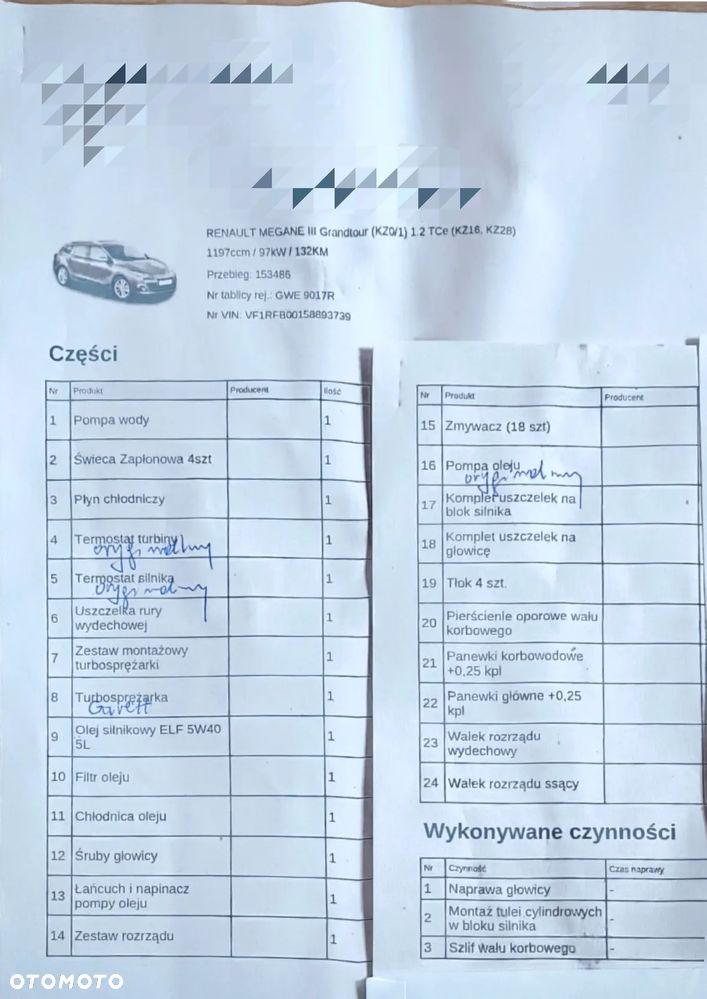 RENAULT MEGANE III Grandtour (KZ0/1) 1.2 TCe (KZ16, KZ28)
1197ccm / 97kW / 132KM
Przebieg: 153486
Nr tablicy rej.: GWE 9017R
Nr VIN: VF1RFB00158893739
Części
Nr Produkt Producent Ilość
1 Pompa wody 1
2 Świeca Zapłonowa 4szt 1
3 Płyn chłodniczy 1
4 Termostat turbiny 1
oryginalny
5 Termostat silnika 1
oryginalny
6 Uszczelka rury
wydechowej 1
7 Zestaw montażowy
turbosprężarki 1
8 Turbosprężarka 1
Garett
9 Olej silnikowy ELF 5W40
5L 1
10 Filtr oleju 1
11 Chłodnica oleju 1
12 Śruby głowicy 1
13 Łańcuch i napinacz
pompy oleju 1
14 Zestaw rozrządu 1
Nr Produkt Producent
15 Zmywacz (18 szt)
16 Pompa oleju
oryginalny
17 Komplet uszczelek na
blok silnika
18 Komplet uszczelek na
głowicę
19 Tłok 4 szt.
20 Pierścienie oporowe wału
korbowego
21 Panewki korbowodowe
+0,25 kpl
22 Panewki główne +0,25
kpl
23 Wałek rozrządu
wydechowy
24 Wałek rozrządu ssący
Wykonywane czynności
Nr Czynność Czas naprawy
1 Naprawa głowicy -
2 Montaż tulei cylindrowych
w bloku silnika -
3 Szlif wału korbowego -
OTOMOTO